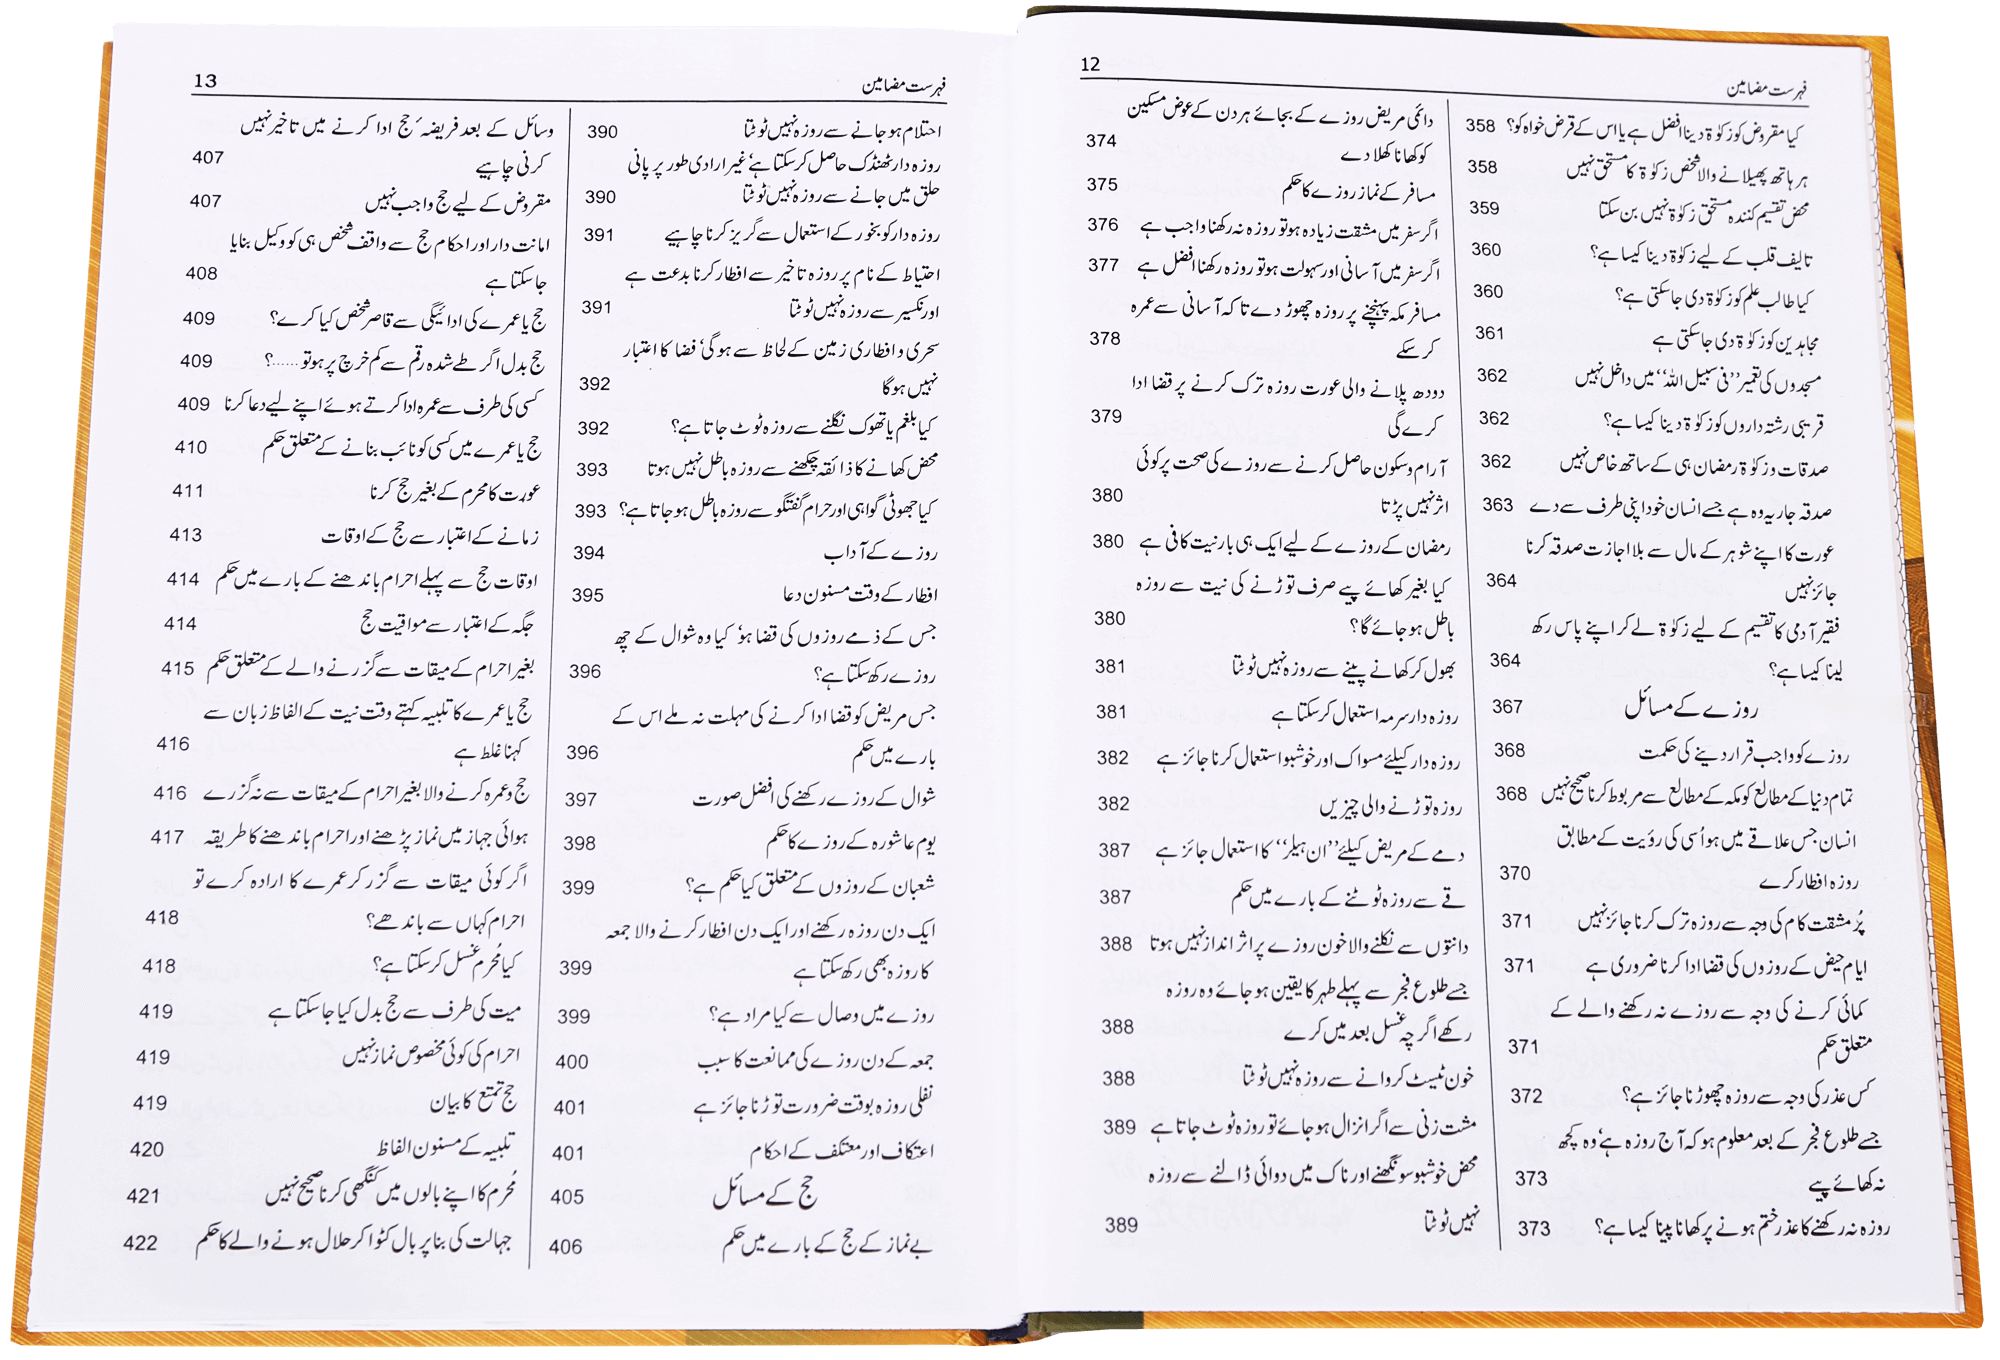 فہرست مضامین 12
کیا مقروض کو زکوٰۃ دینا افضل ہے یا اس کے قرض خواہ کو؟ 358
ہر ہاتھ پھیلانے والا شخص زکوٰۃ کا مستحق نہیں 358
محض تقسیم کنندہ مستحق زکوٰۃ نہیں بن سکتا 359
تالیف قلب کے لیے زکوٰۃ دینا کیسا ہے؟ 360
کیا طالب علم کو زکوٰۃ دی جا سکتی ہے؟ 360
مجاہدین کو زکوٰۃ دی جا سکتی ہے 361
مسجدوں کی تعمیر ’’فی سبیل اللہ‘‘ میں داخل نہیں 362
قریبی رشتہ داروں کو زکوٰۃ دینا کیسا ہے؟ 362
صدقات و زکوٰۃ رمضان ہی کے ساتھ خاص نہیں 362
صدقہ جاریہ وہ ہے جسے انسان خود اپنی طرف سے دے 363
عورت کا اپنے شوہر کے مال سے بلا اجازت صدقہ کرنا
جائز نہیں 364
فقیر آدمی کا تقسیم کے لیے زکوٰۃ لے کر اپنے پاس رکھ
لینا کیسا ہے؟ 364
روزے کے مسائل 367
روزے کو واجب قرار دینے کی حکمت 368
تمام دنیا کے مطالع کو مکہ کے مطالع سے مربوط کرنا صحیح نہیں 368
انسان جس علاقے میں ہو اُسی کی رؤیت کے مطابق
روزہ افطار کرے 370
پُر مشقت کام کی وجہ سے روزہ ترک کرنا جائز نہیں 371
ایام حیض کے روزوں کی قضا ادا کرنا ضروری ہے 371
کمائی کرنے کی وجہ سے روزے نہ رکھنے والے کے
متعلق حکم 371
کس عذر کی وجہ سے روزہ چھوڑنا جائز ہے؟ 372
جسے طلوع فجر کے بعد معلوم ہو کہ آج روزہ ہے‘ وہ کچھ
نہ کھائے پیے 373
روزہ نہ رکھنے کا عذر ختم ہونے پر کھانا پینا کیسا ہے؟ 373
دائمی مریض روزے کے بجائے ہر دن کے عوض مسکین
کو کھانا کھلا دے 374
مسافر کے نماز روزے کا حکم 375
اگر سفر میں مشقت زیادہ ہو تو روزہ نہ رکھنا واجب ہے 376
اگر سفر میں آسانی اور سہولت ہو تو روزہ رکھنا افضل ہے 377
مسافر مکہ پہنچنے پر روزہ چھوڑ دے تاکہ آسانی سے عمرہ
کر سکے 378
دودھ پلانے والی عورت روزہ ترک کرنے پر قضا ادا
کرے گی 379
آرام و سکون حاصل کرنے سے روزے کی صحت پر کوئی
اثر نہیں پڑتا 380
رمضان کے روزے کے لیے ایک ہی بار نیت کافی ہے 380
کیا بغیر کھائے پیے صرف توڑنے کی نیت سے روزہ
باطل ہو جائے گا؟ 380
بھول کر کھانے پینے سے روزہ نہیں ٹوٹتا 381
روزہ دار سرمہ استعمال کر سکتا ہے 381
روزہ دار کیلئے مسواک اور خوشبو استعمال کرنا جائز ہے 382
روزہ توڑنے والی چیزیں 382
دمے کے مریض کیلئے ’’ان ہیلر‘‘ کا استعمال جائز ہے 387
قے سے روزہ ٹوٹنے کے بارے میں حکم 387
دانتوں سے نکلنے والا خون روزے پر اثر انداز نہیں ہوتا 388
جسے طلوع فجر سے پہلے طہر کا یقین ہو جائے وہ روزہ
رکھے اگرچہ غسل بعد میں کرے 388
خون ٹیسٹ کروانے سے روزہ نہیں ٹوٹتا 388
مشت زنی سے اگر انزال ہو جائے تو روزہ ٹوٹ جاتا ہے 389
محض خوشبو سونگھنے اور ناک میں دوائی ڈالنے سے روزہ
نہیں ٹوٹتا 389
فہرست مضامین 13
احتلام ہو جانے سے روزہ نہیں ٹوٹتا 390
روزہ دار ٹھنڈک حاصل کر سکتا ہے‘ غیر ارادی طور پر پانی
حلق میں جانے سے روزہ نہیں ٹوٹتا 390
روزہ دار کو بخور کے استعمال سے گریز کرنا چاہیے 391
احتیاط کے نام پر روزہ تاخیر سے افطار کرنا بدعت ہے
اور نکسیر سے روزہ نہیں ٹوٹتا 391
سحری و افطاری زمین کے لحاظ سے ہو گی‘ فضا کا اعتبار
نہیں ہوگا 392
کیا بلغم یا تھوک نگلنے سے روزہ ٹوٹ جاتا ہے؟ 392
محض کھانے کا ذائقہ چکھنے سے روزہ باطل نہیں ہوتا 393
کیا جھوٹی گواہی اور حرام گفتگو سے روزہ باطل ہو جاتا ہے؟ 393
روزے کے آداب 394
افطار کے وقت مسنون دعا 395
جس کے ذمے روزوں کی قضا ہو‘ کیا وہ شوال کے چھ
روزے رکھ سکتا ہے؟ 396
جس مریض کو قضا ادا کرنے کی مہلت نہ ملے اس کے
بارے میں حکم 396
شوال کے روزے رکھنے کی افضل صورت 397
یوم عاشورہ کے روزے کا حکم 398
شعبان کے روزوں کے متعلق کیا حکم ہے؟ 399
ایک دن روزہ رکھنے اور ایک دن افطار کرنے والا جمعہ
کا روزہ بھی رکھ سکتا ہے 399
روزے میں وصال سے کیا مراد ہے؟ 399
جمعہ کے دن روزے کی ممانعت کا سبب 400
نفلی روزہ بوقت ضرورت توڑنا جائز ہے 401
اعتکاف اور معتکف کے احکام 401
حج کے مسائل 405
بے نماز کے حج کے بارے میں حکم 406
وسائل کے بعد فریضہٴ حج ادا کرنے میں تاخیر نہیں
کرنی چاہیے 407
مقروض کے لیے حج واجب نہیں 407
امانت دار اور احکام حج سے واقف شخص ہی کو وکیل بنایا
جا سکتا ہے 408
حج یا عمرے کی ادائیگی سے قاصر شخص کیا کرے؟ 409
حج بدل اگر طے شدہ رقم سے کم خرچ پر ہو تو......؟ 409
کسی کی طرف سے عمرہ ادا کرتے ہوئے اپنے لیے دعا کرنا 409
حج یا عمرے میں کسی کو نائب بنانے کے متعلق حکم 410
عورت کا محرم کے بغیر حج کرنا 411
زمانے کے اعتبار سے حج کے اوقات 413
اوقات حج سے پہلے احرام باندھنے کے بارے میں حکم 414
جگہ کے اعتبار سے مواقیت حج 414
بغیر احرام کے میقات سے گزرنے والے کے متعلق حکم 415
حج یا عمرے کا تلبیہ کہتے وقت نیت کے الفاظ زبان سے
کہنا غلط ہے 416
حج و عمرہ کرنے والا بغیر احرام کے میقات سے نہ گزرے 416
ہوائی جہاز میں نماز پڑھنے اور احرام باندھنے کا طریقہ 417
اگر کوئی میقات سے گزر کر عمرے کا ارادہ کرے تو
احرام کہاں سے باندھے؟ 418
کیا مُحرم غسل کر سکتا ہے؟ 418
میت کی طرف سے حج بدل کیا جا سکتا ہے 419
احرام کی کوئی مخصوص نماز نہیں 419
حج تمتع کا بیان 419
تلبیہ کے مسنون الفاظ 420
مُحرم کا اپنے بالوں میں کنگھی کرنا صحیح نہیں 421
جہالت کی بنا پر بال کٹوا کر حلال ہونے والے کا حکم 422